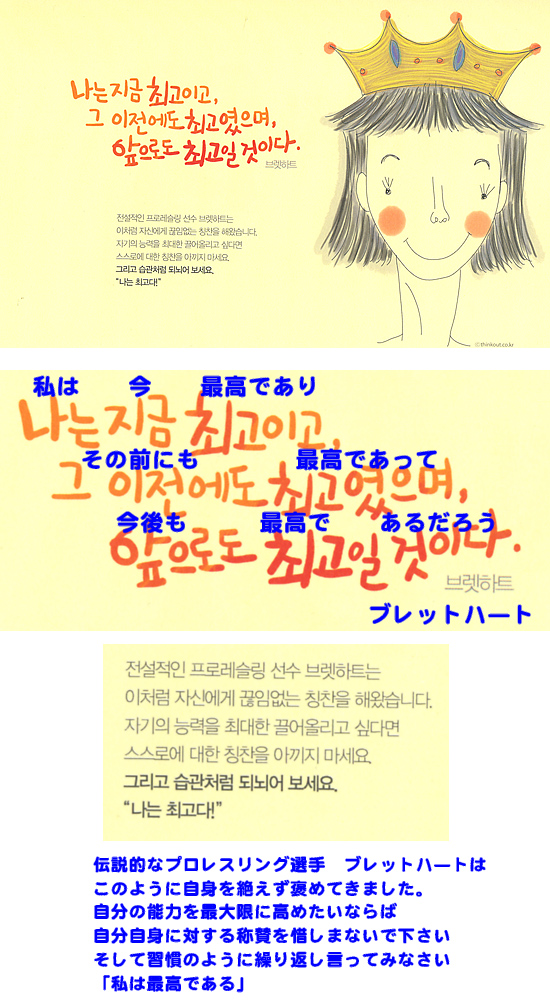 나는 지금 최고이고,
그 이전에도 최고였으며,
앞으로도 최고일 것이다.
브렛하트
전설적인 프로레슬링 선수 브렛하트는
이처럼 자신에게 끊임없는 칭찬을 해왔습니다.
자기의 능력을 최대한 끌어올리고 싶다면
스스로에 대한 칭찬을 아끼지 마세요.
그리고 습관처럼 되뇌어 보세요.
“나는 최고다!”
ⓒthinkout.co.kr
私は 今 最高であり
나는 지금 최고이고,
その前にも 最高であって
그 이전에도 최고였으며,
今後も 最高で あるだろう
앞으로도 최고일 것이다.
브렛하트
ブレットハート
전설적인 프로레슬링 선수 브렛하트는
이처럼 자신에게 끊임없는 칭찬을 해왔습니다.
자기의 능력을 최대한 끌어올리고 싶다면
스스로에 대한 칭찬을 아끼지 마세요.
그리고 습관처럼 되뇌어 보세요.
“나는 최고다!”
伝説的なプロレスリング選手 ブレットハートは
このように自身を絶えず褒めてきました。
自分の能力を最大限に高めたいならば
自分自身に対する称賛を惜しまないで下さい
そして習慣のように繰り返し言ってみなさい
「私は最高である」